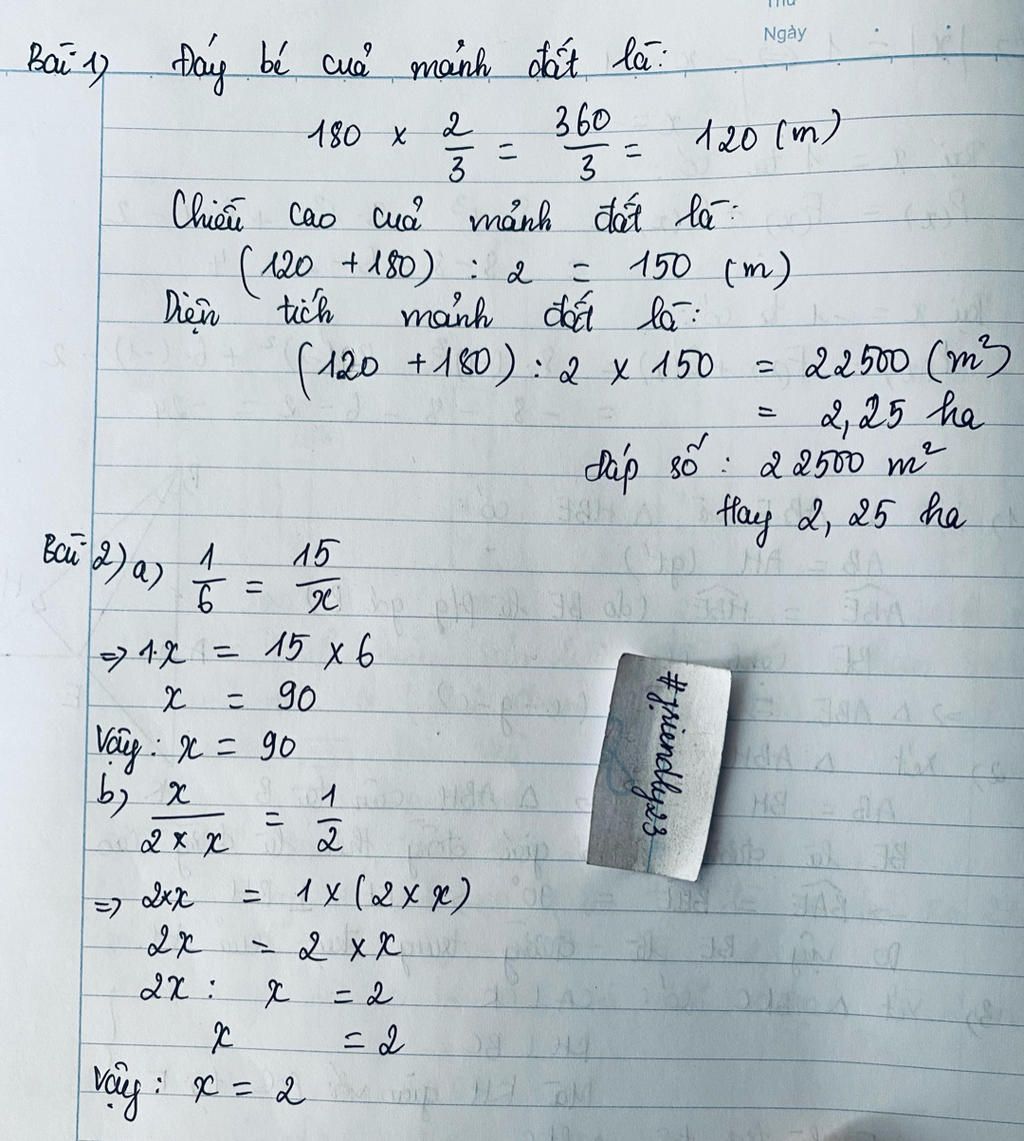 Thứ
Ngày
Bài 1) Đáy bé của mảnh đất là:
180 × 2/3 = 360/3 = 120 (m)
Chiều cao của mảnh đất là:
(120 + 180) : 2 = 150 (m)
Diện tích mảnh đất là:
(120 + 180) : 2 × 150 = 22500 (m²)
= 2,25 ha
Đáp số : 22500 m²
Hay 2,25 ha
Bài 2) a) 1/6 = 15/x
=> 1.x = 15 × 6
x = 90
Vậy : x = 90
b) x/(2 × x) = 1/2
=> 2×x = 1 × (2 × x)
2x = 2 × x
2x : x = 2
x = 2
Vậy : x = 2
#friendly23